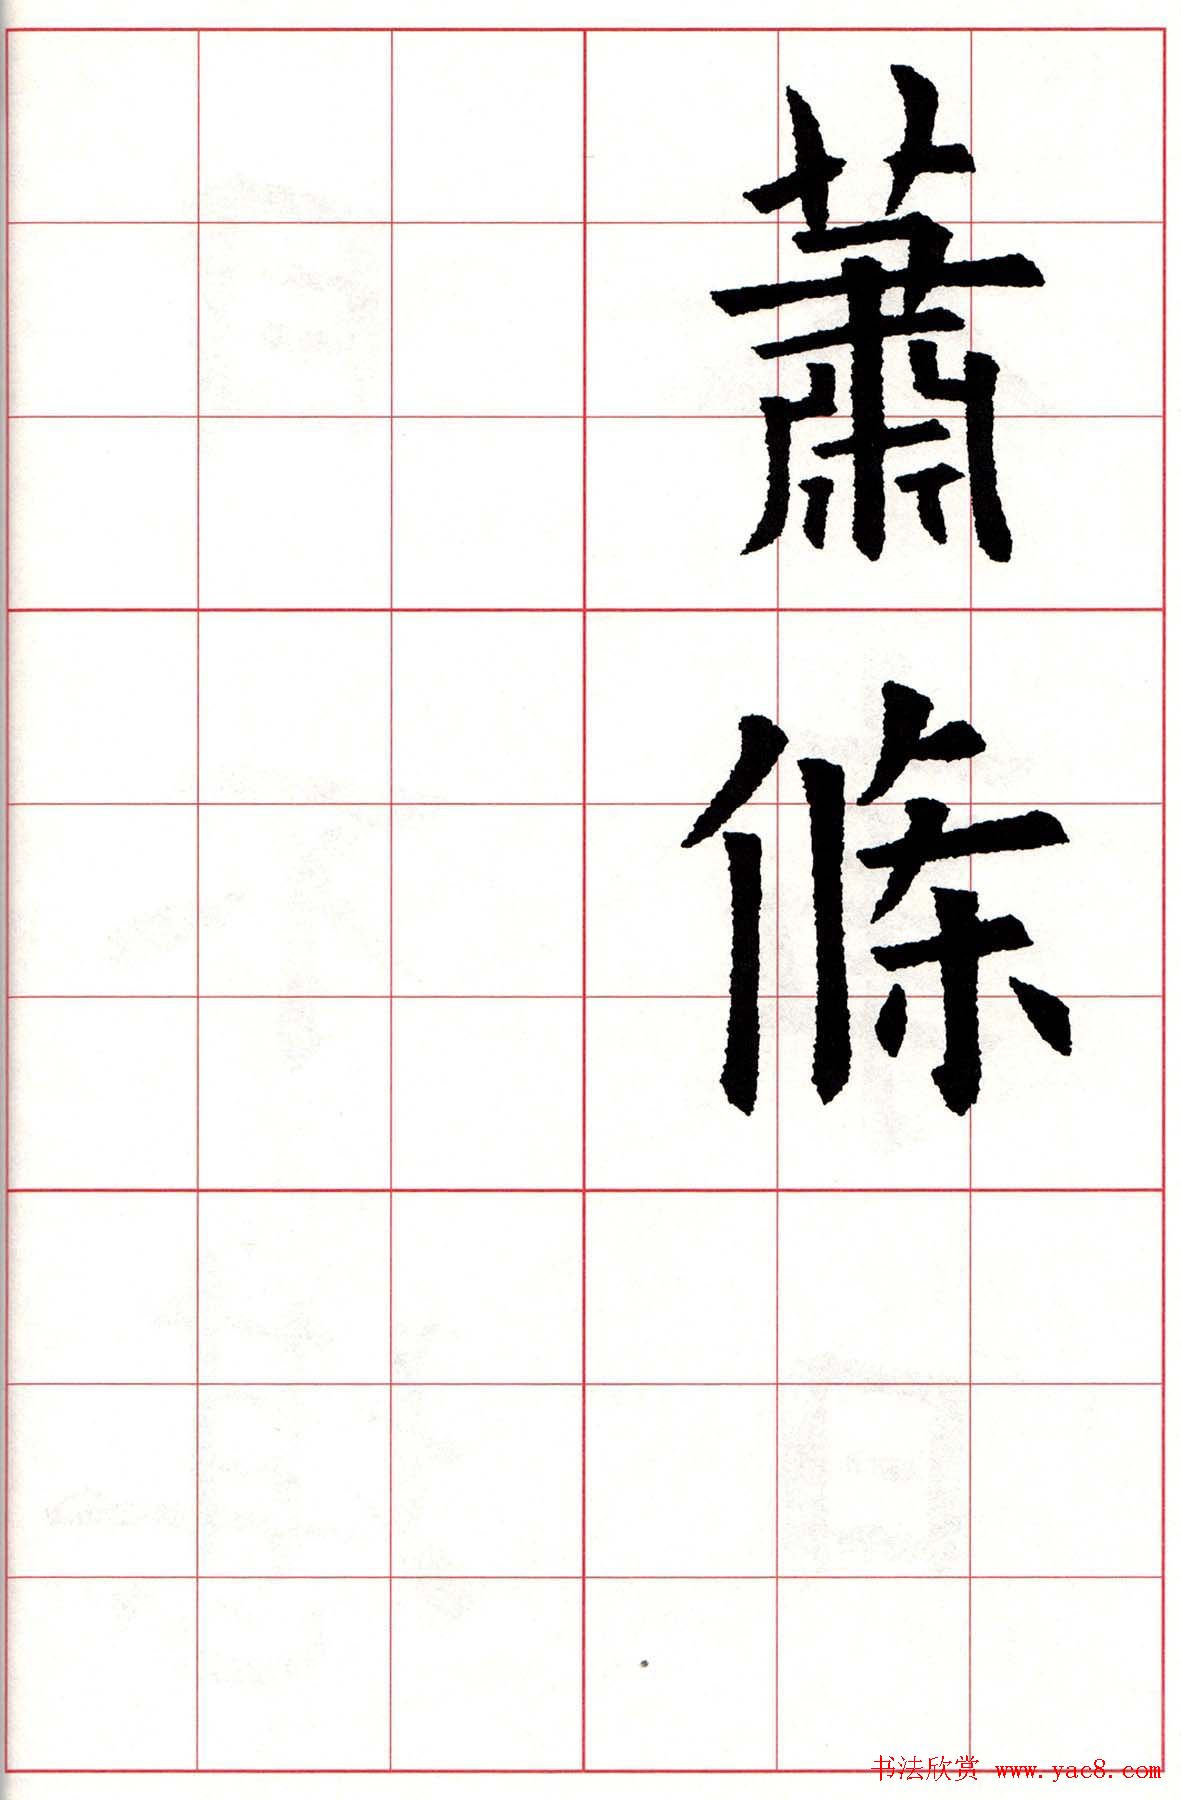 蕭條
书法欣赏 www.yac8.com